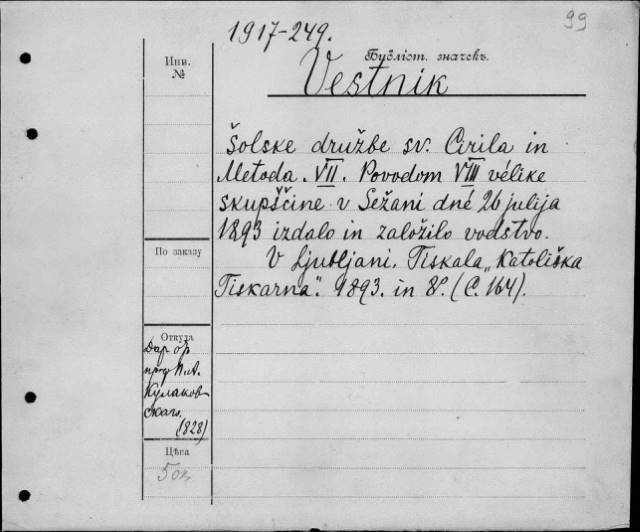 99
1917-249.
Бубліот. значекъ.
Инв.
№
Vestnik
šolske družbe sv. Cirila in
Metoda. VII. Povodom VIII vélike
skupščine v Sežani dné 26 julija
1893 izdalo in založilo vodstvo.
V Ljubljani. Tiskala „Katoliška
Tiskarna". 1893. in 8º. (C. 164).
По заказу
Откуда
Дар
проф П.А.
Кулаков-
скаго.
(828)
Цѣна
50к